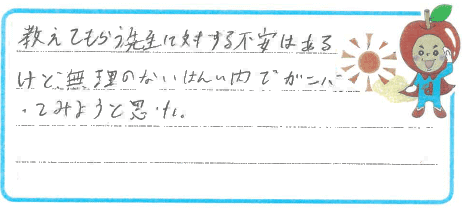 教えてもらう先生に対する不安はある
けど無理のないはんい内でガンバ
ってみようと思った。